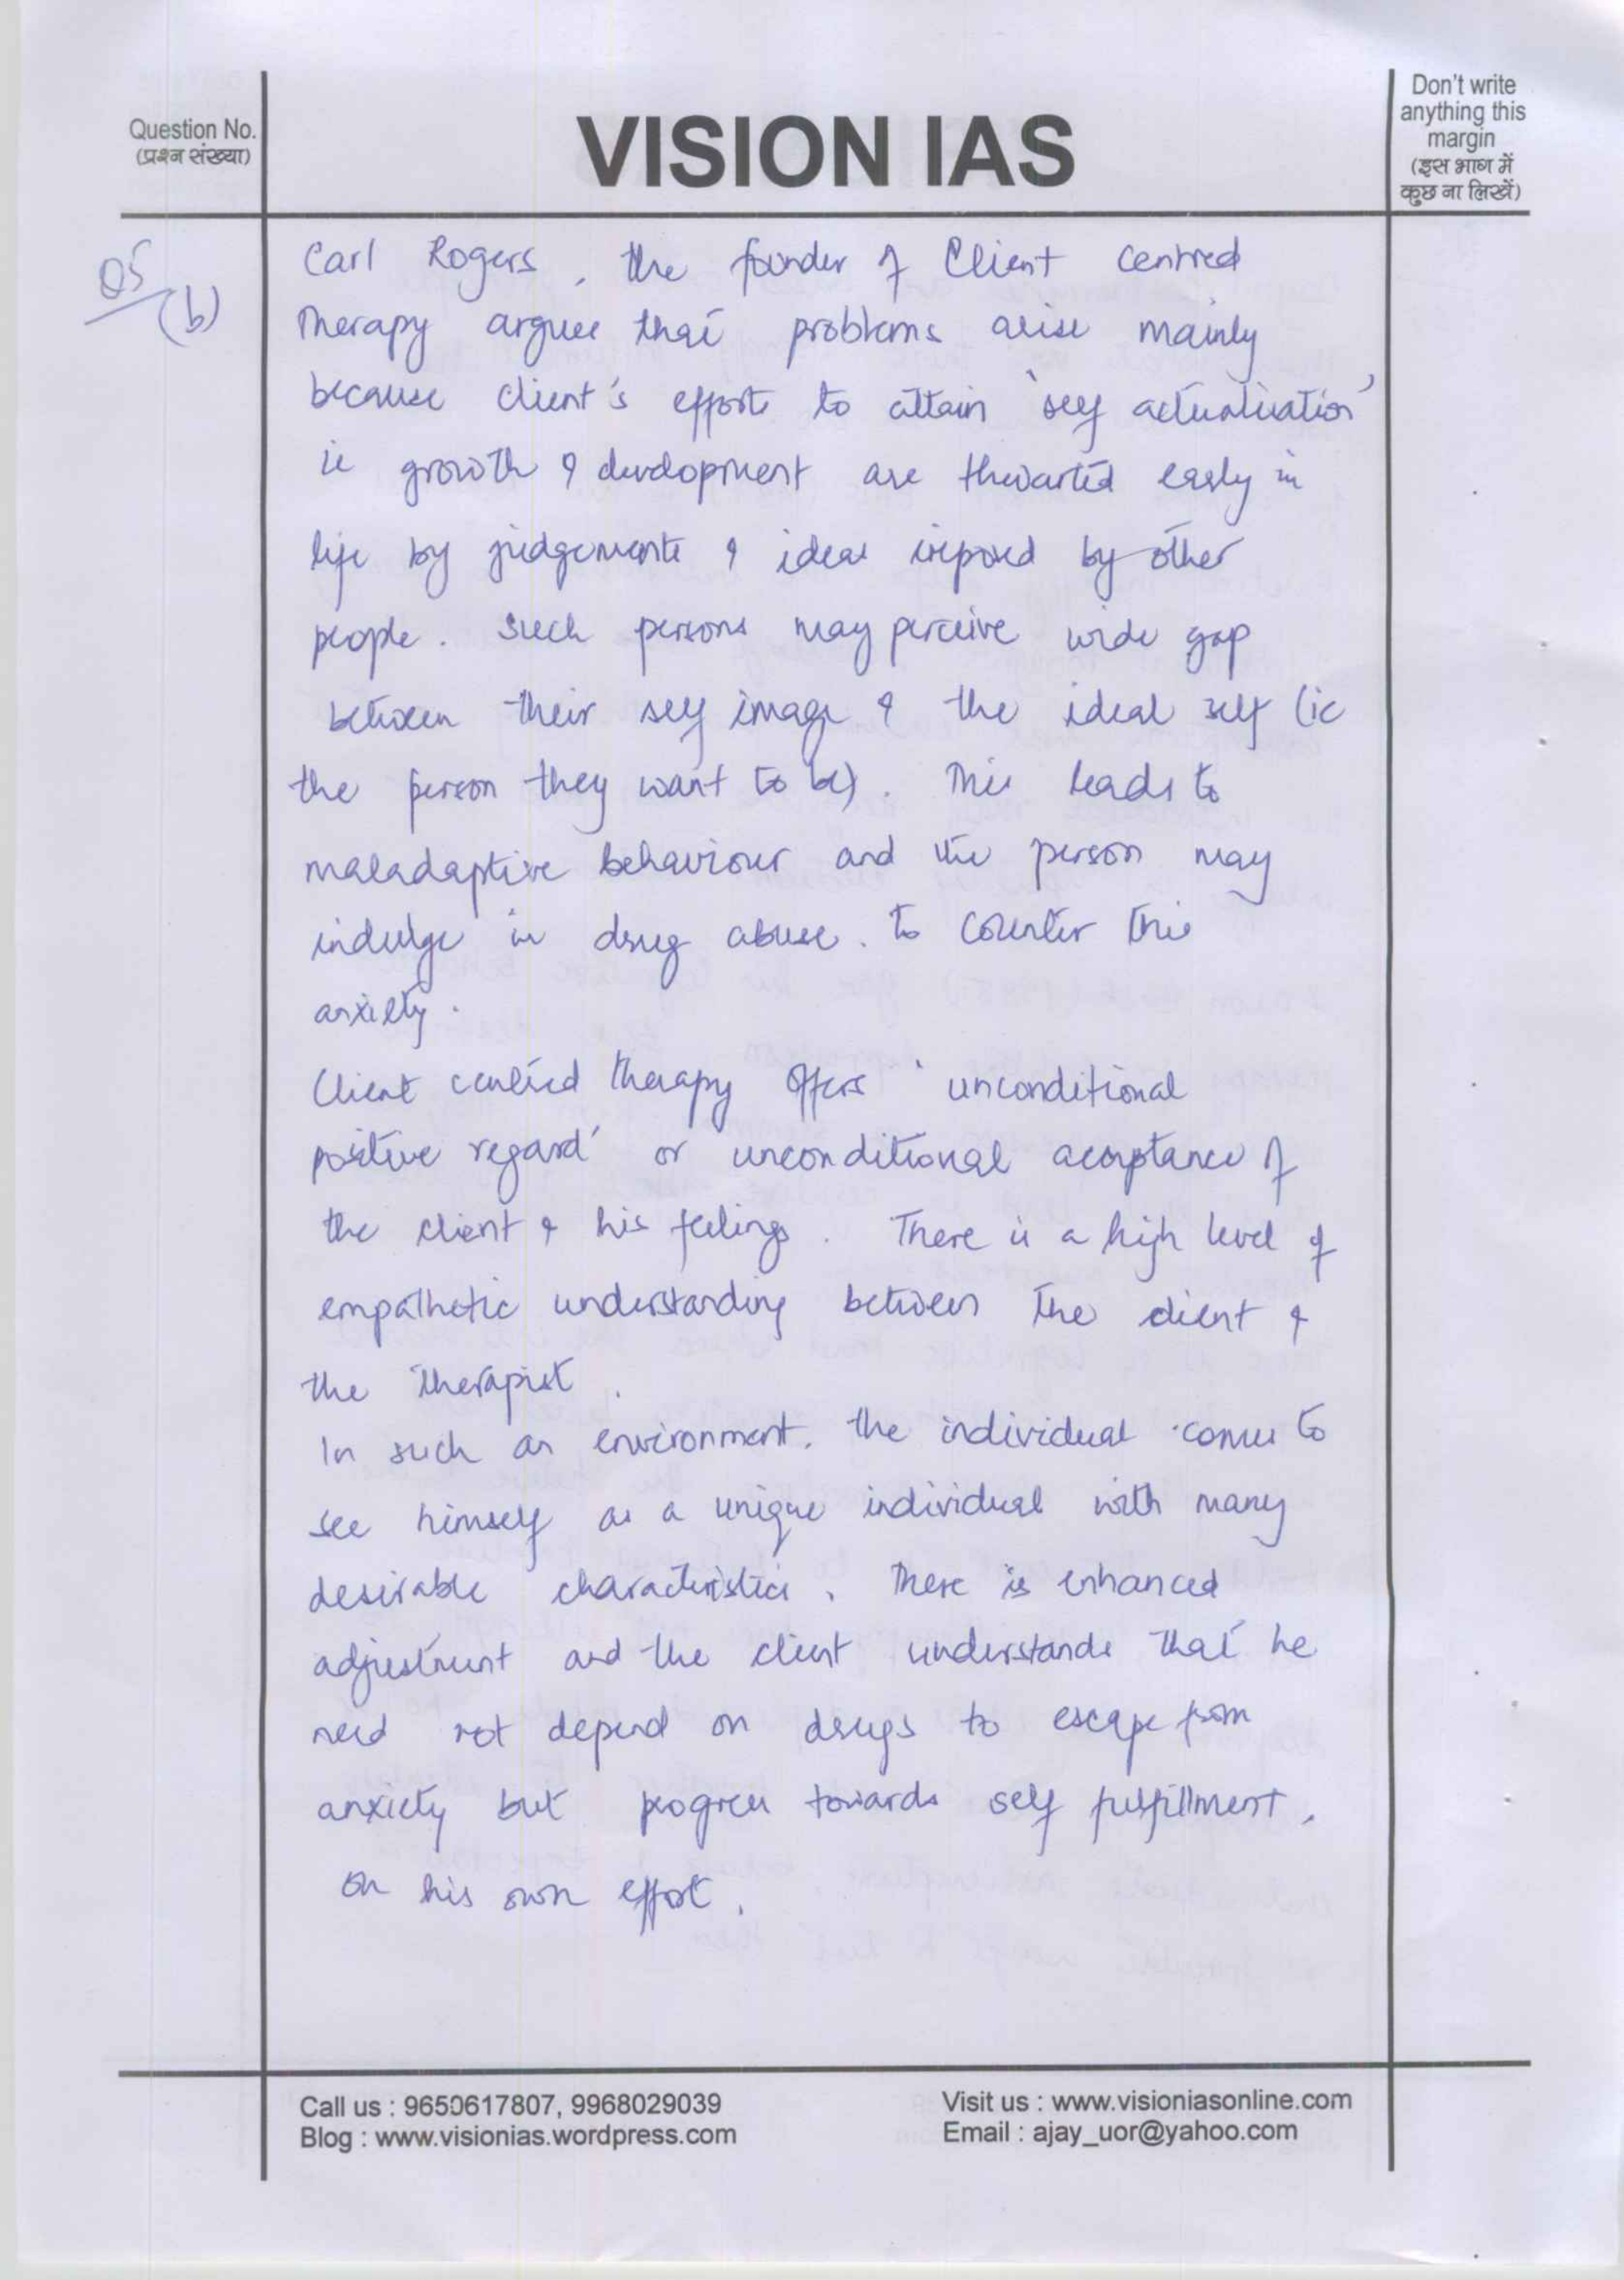 Question No.
(प्रश्न संख्या)
VISION IAS
Don't write
anything this
margin
(इस भाग में
कुछ ना लिखें)
Q5
(b)
Carl Rogers, the founder of Client Centred
Therapy argues that problems arise mainly
because client's efforts to attain 'self actualisation'
ie growth & development are thwarted early in
life by judgements & ideas imposed by other
people. Such persons may perceive wide gap
between their self image & the ideal self (ie
the person they want to be). This leads to
maladaptive behaviour and the person may
indulge in drug abuse. to counter this
anxiety.
Client centred therapy offers 'unconditional
positive regard' or unconditional acceptance of
the client & his feelings. There is a high level of
empathetic understanding between the client &
the therapist.
In such an environment, the individual comes to
see himself as a unique individual with many
desirable characteristics. There is enhanced
adjustment and the client understands that he
need not depend on drugs to escape from
anxiety but progress towards self fulfillment,
on his own effort.
Call us : 9650617807, 9968029039
Blog : www.visionias.wordpress.com
Visit us : www.visioniasonline.com
Email : ajay_uor@yahoo.com